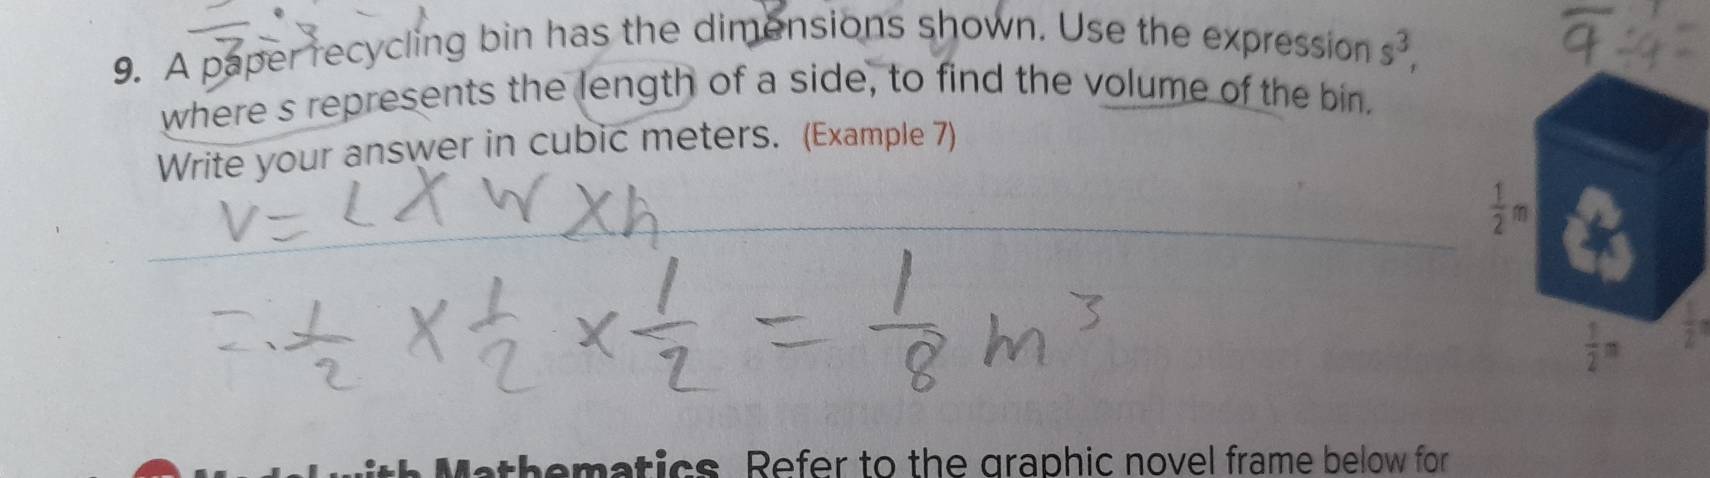 9. A paper recycling bin has the dimensions shown. Use the expression s³,
where s represents the length of a side, to find the volume of the bin.
Write your answer in cubic meters. (Example 7)
V = L X W X h
= 1/2 X 1/2 X 1/2 = 1/8 m³
1/2 m
1/2 m
1/2
Model with Mathematics Refer to the graphic novel frame below for